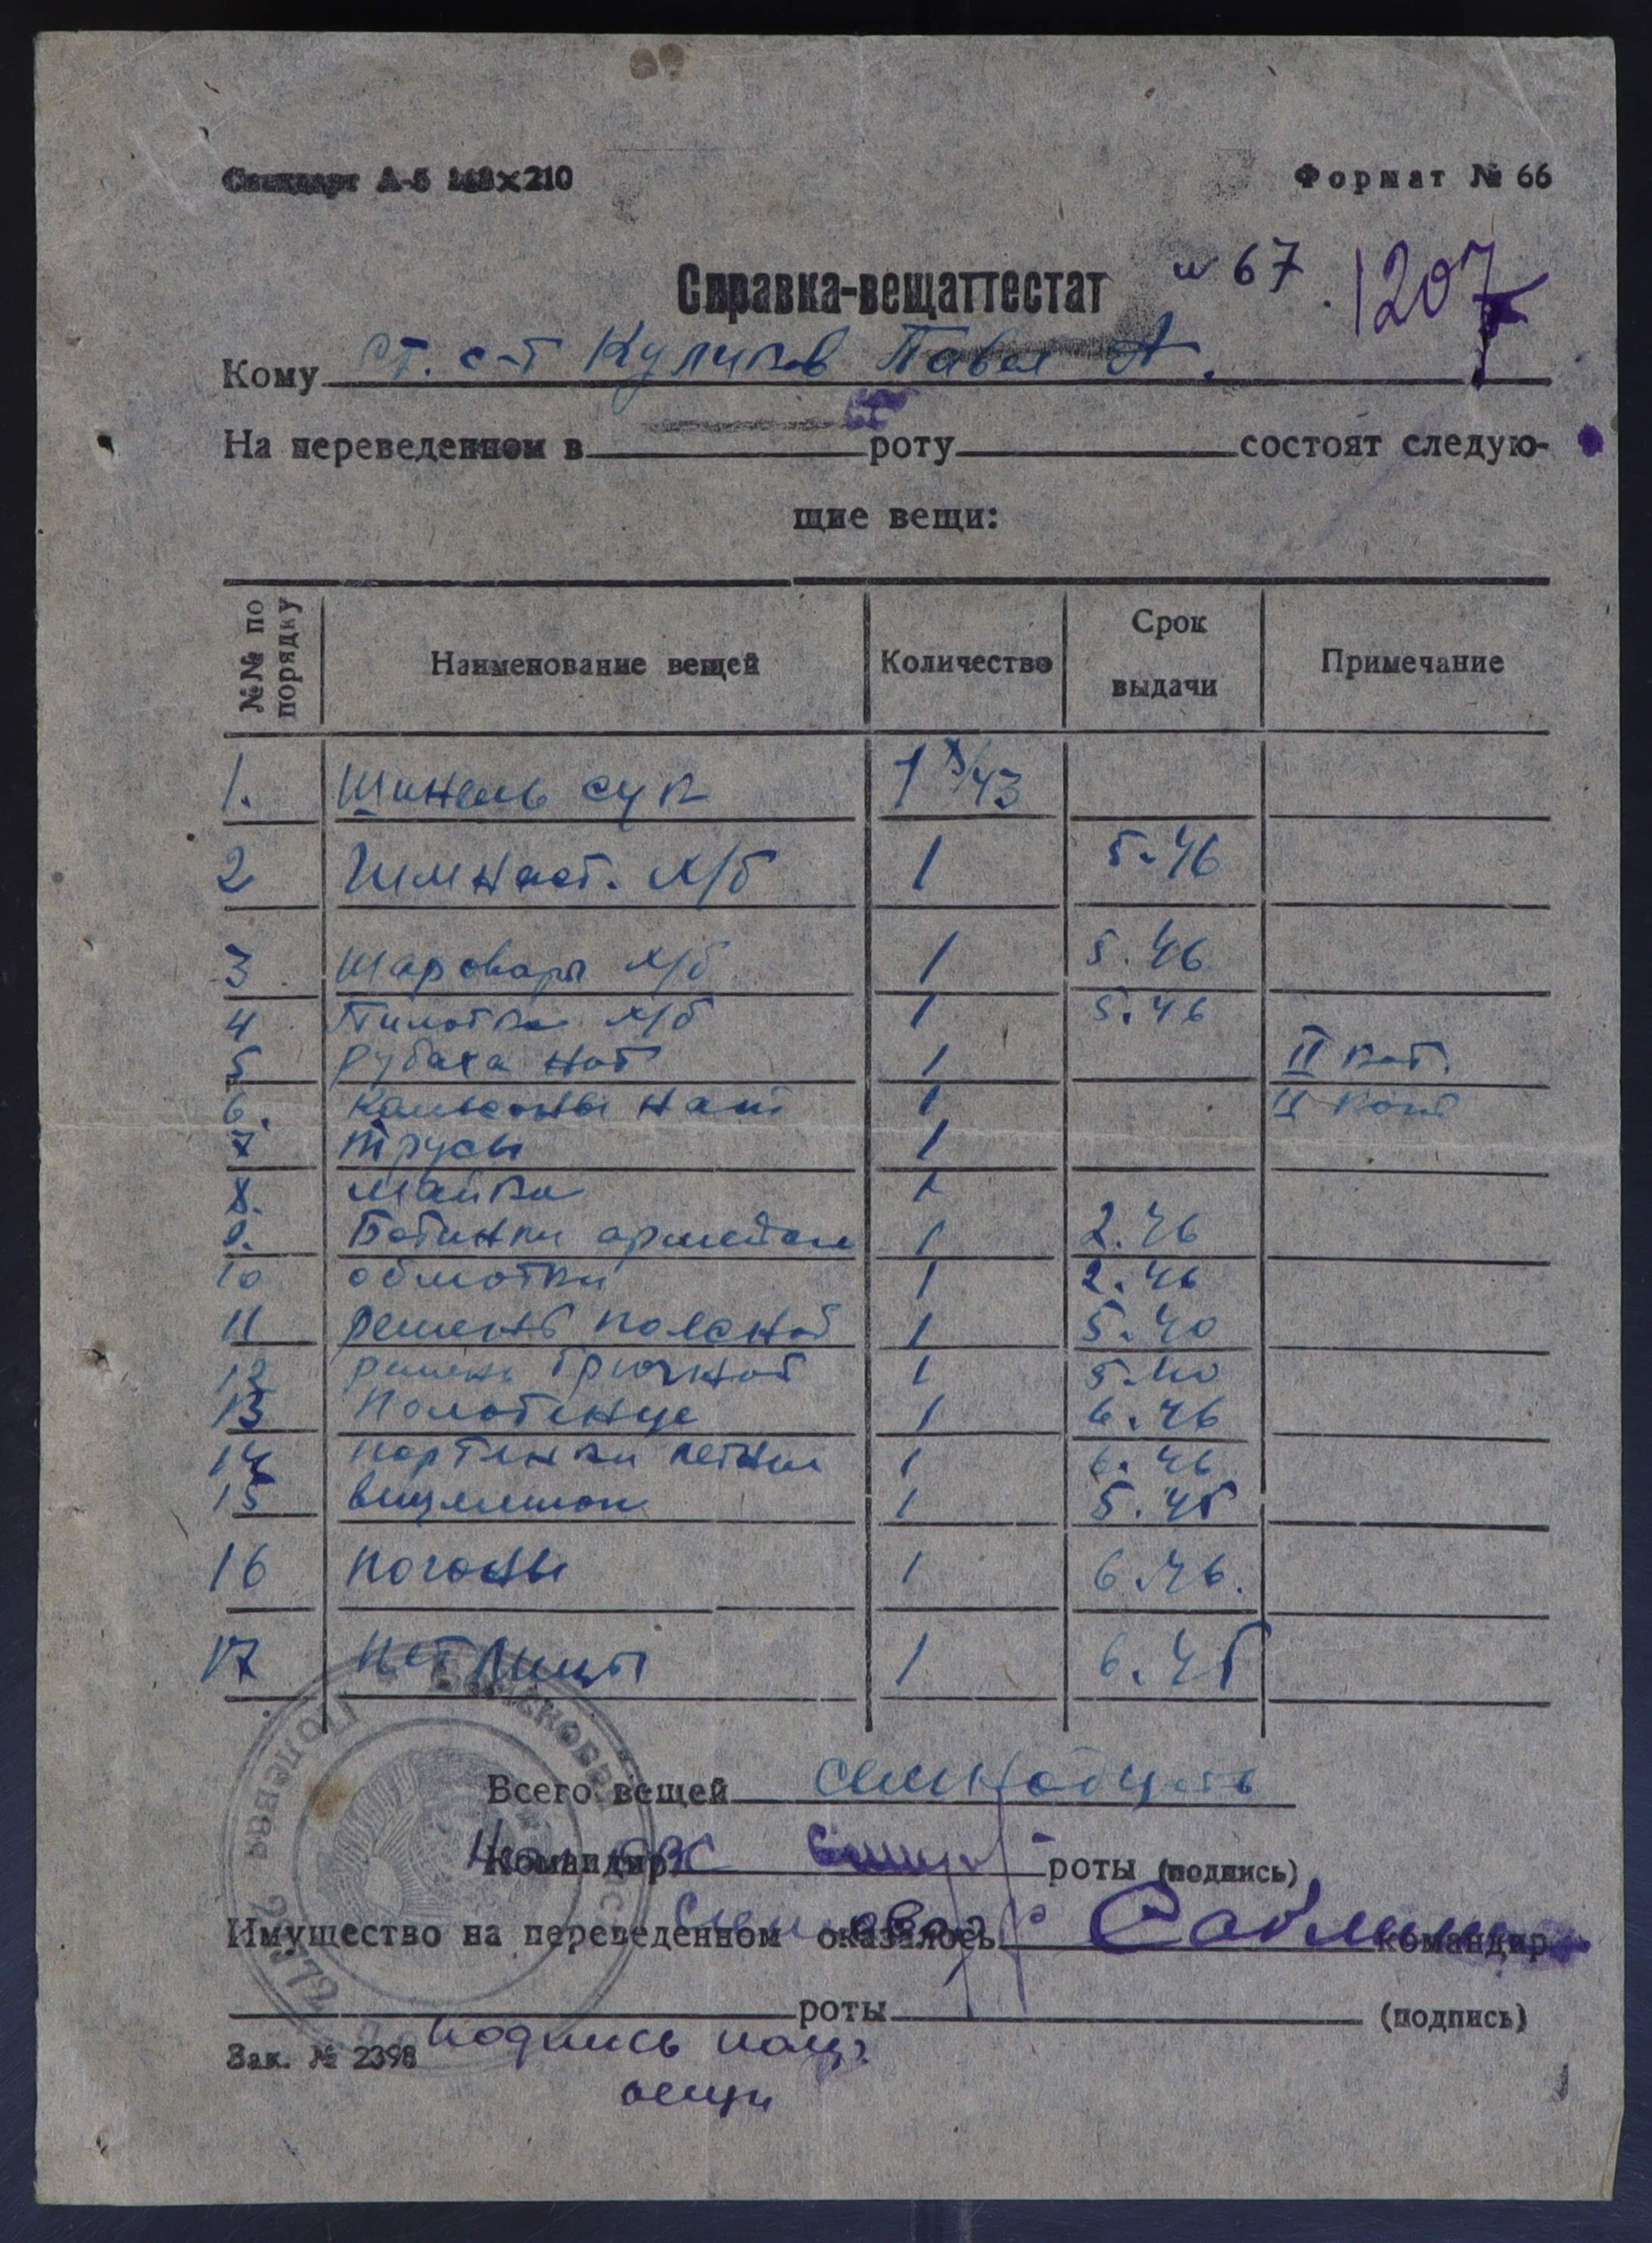 Стандарт А-5 148х210 Формат № 66
Справка-вещаттестат № 67 1207
Кому ст. с-т Куликов Павел А.
На переведенном в роту состоят следую-
щие вещи:
№№ по порядку Наименование вещей Количество Срок выдачи Примечание
1. Шинель сук 1 43
2 Гимнаст. х/б 1 5.46
3 шаровары х/б 1 5.46
4 Пилотка х/б 1 5.46
5 рубаха нат 1 II кат.
6. Кальсоны нат 1 II кат
7 трусы 1
8. майка 1
9. Ботинки 1 2.46
10 обмотки 1 2.46
11 ремень поясной 1 5.40
12 ремень брючной 1 5.40
13 Полотенце 1 6.46
14 портянки летние 1 6.46
15 вещмешок 1 5.45
16 погоны 1 6.46.
17 петлицы 1 6.45
Всего вещей семнадцать
Командир роты (подпись)
Имущество на переведенном оказалось командир
роты (подпись)
Зак. № 2398 подпись
вещи